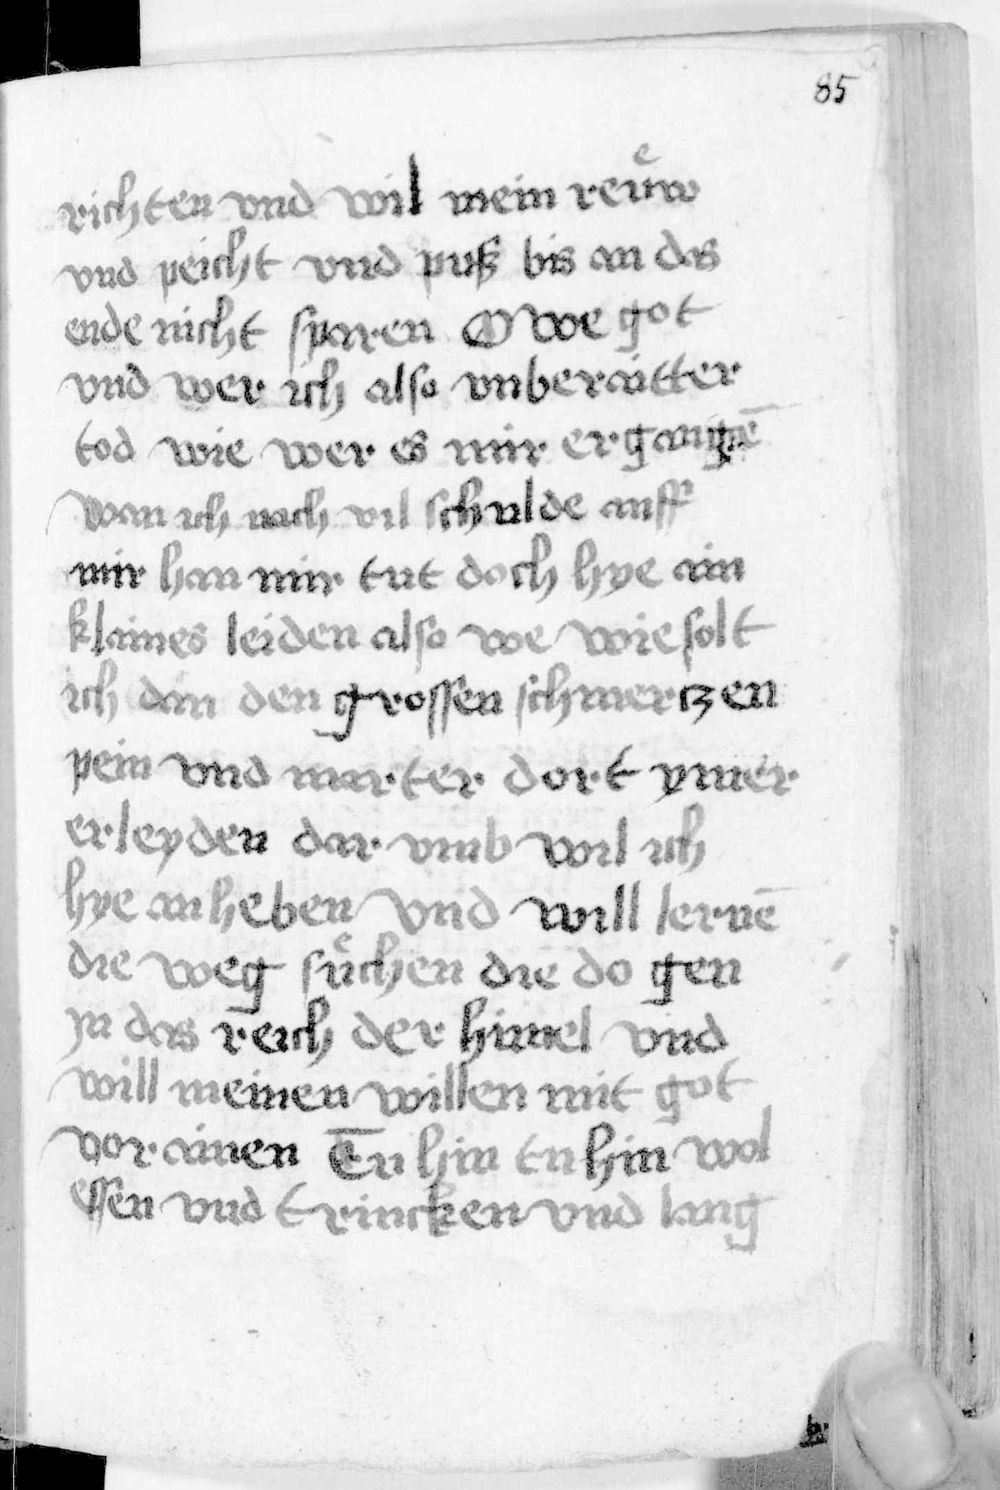 85
richten vnd wil mein reuͤw
vnd peicht vnd puß bis an das
ende nicht sparen O we got
vnd wer ich also vnberaitter
tod wie wer es mir ergangē
Wan ich nach vil schulde auff
mir han mir tut doch hye ain
klaines leiden also we wie solt
ich dan den grossen schmertzen
pein vnd marter dort ymer
erleyden dar vmb wil ich
hye an heben vnd will lernē
die weg suͤchen die do gen
jn das reich der himel vnd
will meinen willen mit got
vor ainen Tu hin tu hin wol
essen vnd trincken vnd lang